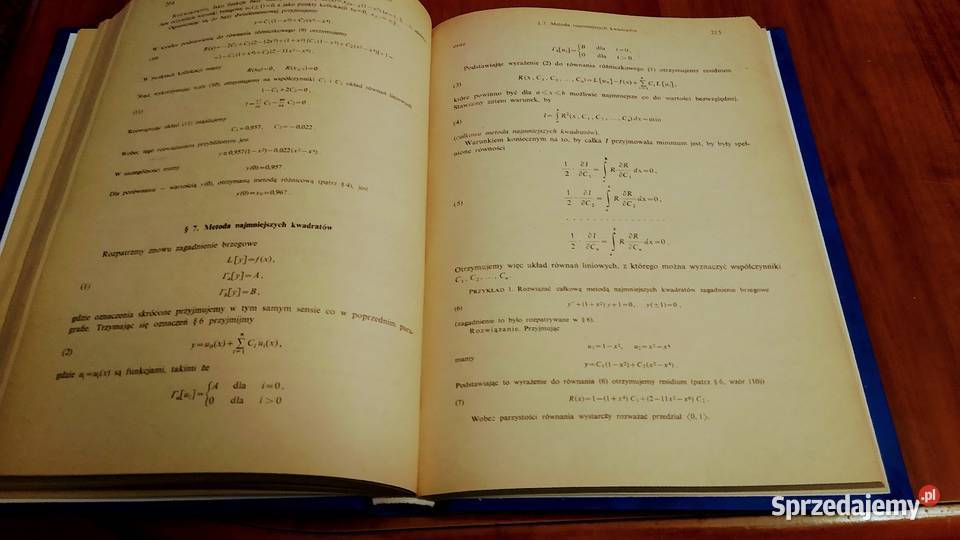 214
W wyniku podstawienia do równania różniczkowego (9) otrzymujemy
W punktach kolokacji mamy R(x₀)=0, R(x₁)=0
1−C₁+2C₂=0,
(11)
Rozwiązując układ (11) znajdujemy
C₁=0,957, C₂=−0,022.
Wobec tego rozwiązaniem przybliżonym jest
y≈0,957(1−x²)−0,022(x²−x⁴).
W szczególności mamy y(0)=0,957
Dla porównania – wartością y(0), otrzymaną metodą różnicową (patrz § 4), jest
y(0)=y₀=0,967.
§ 7. Metoda najmniejszych kwadratów
Rozpatrzmy znowu zagadnienie brzegowe
L[y]=f(x),
(1) Γₐ[y]=A,
Γ_b[y]=B,
gdzie oznaczenia skrócone przyjmujemy w tym samym sensie co w poprzednim para-
grafie. Trzymając się oznaczeń § 6 przyjmijmy
(2) y=u₀(x)+ Σ Cᵢuᵢ(x),
gdzie uᵢ=uᵢ(x) są funkcjami, takimi że
Γₐ[uᵢ]={A dla i=0,
0 dla i>0
§ 7. Metoda najmniejszych kwadratów 215
oraz
Γ_b[uᵢ]={B dla i=0,
0 dla i>0.
Podstawiając wyrażenie (2) do równania różniczkowego (1) otrzymujemy residuum
(3) R(x, C₁, C₂, ..., Cₙ)=L[u₀]−f(x)+ Σ CᵢL[uᵢ],
które powinno być dla a≤x≤b możliwie najmniejsze co do wartości bezwzględnej.
Stawiamy zatem warunek, by
(4) I=∫ R²(x, C₁, C₂, ..., Cₙ)dx=min
(całkowa metoda najmniejszych kwadratów).
Warunkiem koniecznym na to, by całka I przyjmowała minimum jest, by były speł-
nione równości
1/2 · ∂I/∂C₁ = ∫ R ∂R/∂C₁ dx=0,
(5) 1/2 · ∂I/∂C₂ = ∫ R ∂R/∂C₂ dx=0,
. . . . . . . . . . . . . . . .
1/2 · ∂I/∂Cₙ = ∫ R ∂R/∂Cₙ dx=0.
Otrzymujemy więc układ równań liniowych, z którego można wyznaczyć współczynniki
C₁, C₂, ..., Cₙ.
PRZYKŁAD 1. Rozwiązać całkową metodą najmniejszych kwadratów zagadnienie brzegowe
(6) y″+(1+x²)y+1=0, y(±1)=0.
(zagadnienie to było rozpatrywane w § 6).
Rozwiązanie. Przyjmując
u₁=1−x², u₂=x²−x⁴
mamy
y=C₁(1−x²)+C₂(x²−x⁴).
Podstawiając to wyrażenie do równania (6) otrzymujemy residium (patrz § 6, wzór (10))
(7) R(x)=1−(1+x⁴)C₁+(2−11x²−x⁶)C₂.
Wobec parzystości równania wystarczy rozważać przedział ⟨0, 1⟩.
Sprzedajemy.pl